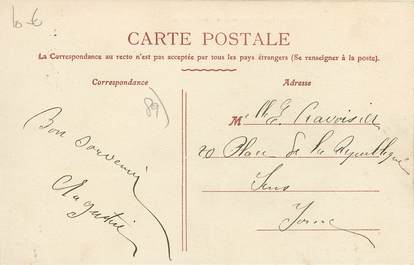 10-6
CARTE POSTALE
La Correspondance au recto n'est pas acceptée par tous les pays étrangers (Se renseigner à la poste).
Correspondance
Adresse
89
Bon souvenir
Augustine
Mlle E.
20 Place de la République
Sens
Yonne